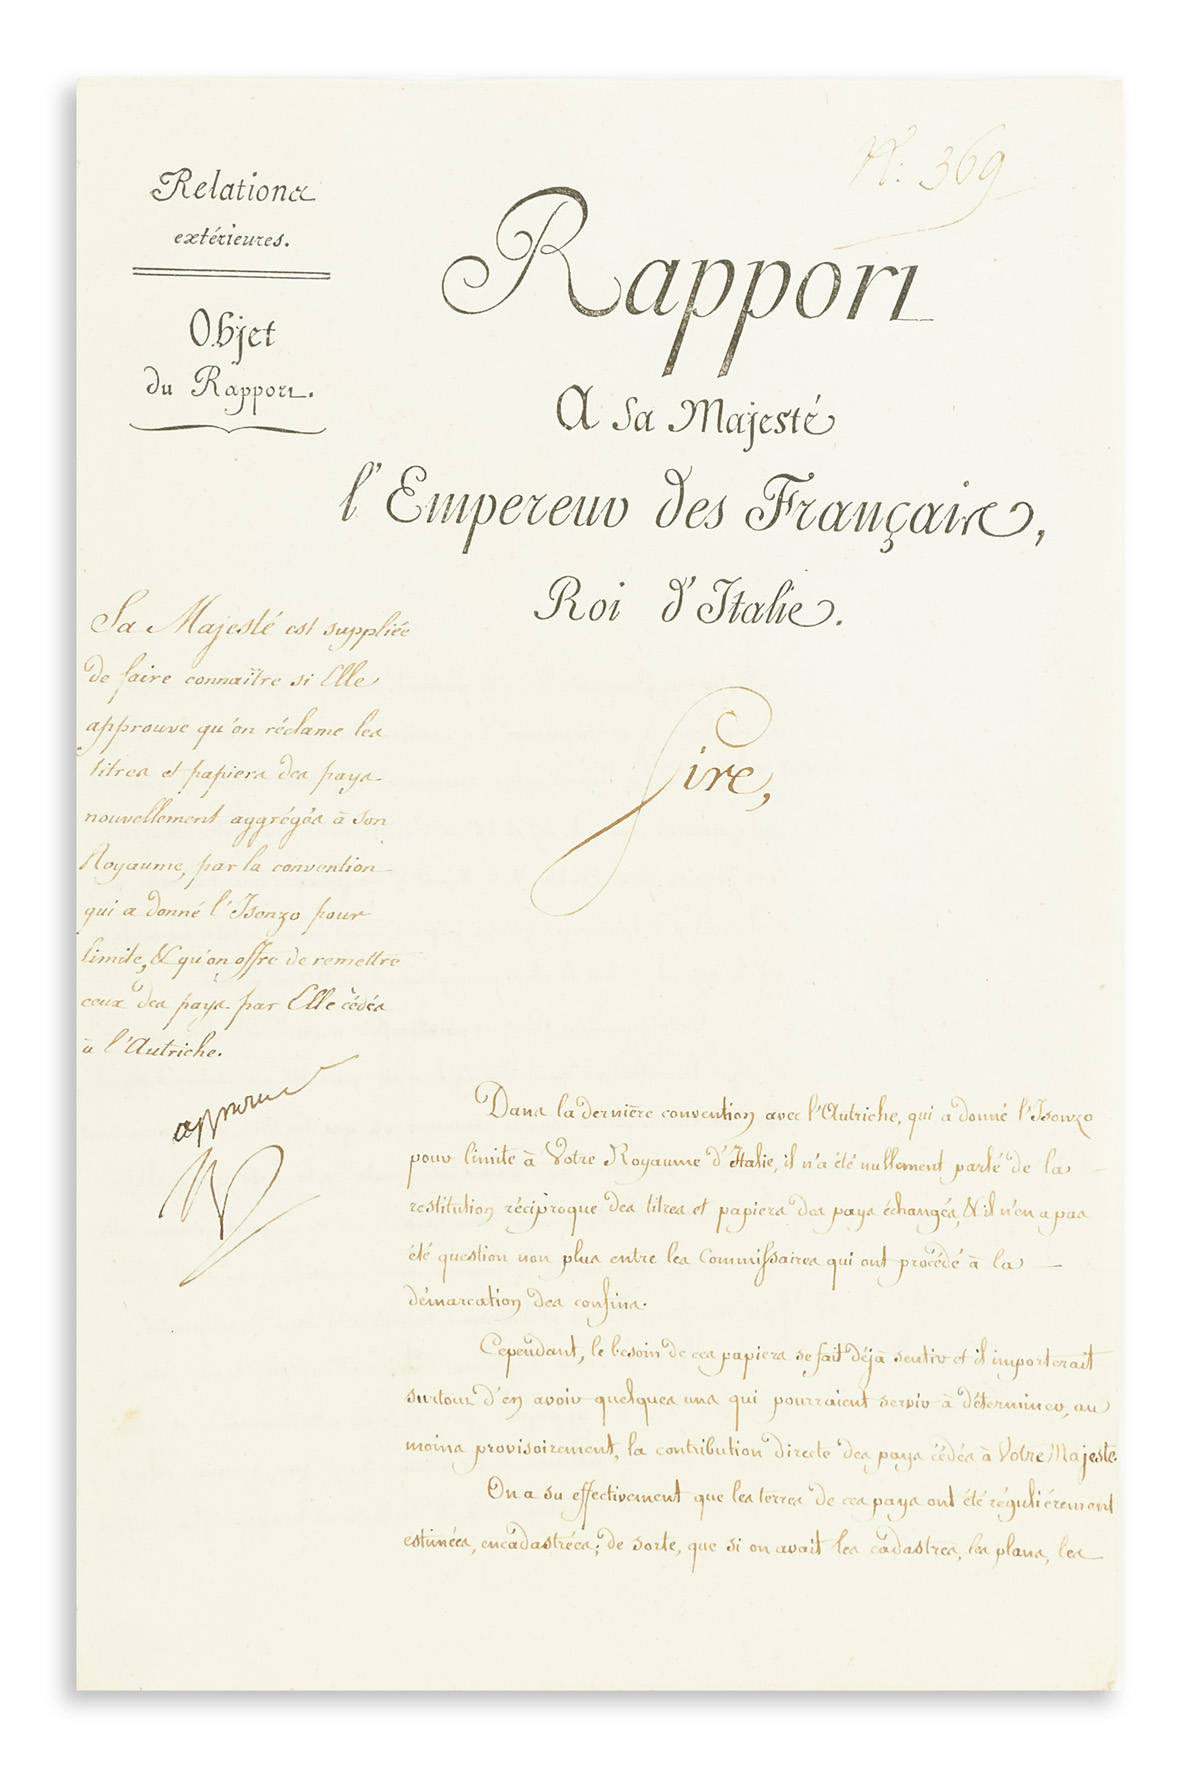 N.º 369
Relations
extérieures.
Objet
du Rapport.
Rapport
A Sa Majesté
l'Empereur des Français,
Roi d'Italie.
Sa Majesté est suppliée
de faire connaître si Elle
approuve qu'on réclame les
titres et papiers des pays
nouvellement aggrégés à son
Royaume, par la convention
qui a donné l'Isonzo pour
limite, & qu'on offre de remettre
ceux des pays par Elle cédés
à l'Autriche.
approuvé
Sire,
Dans la dernière convention avec l'Autriche, qui a donné l'Isonzo
pour limite à Votre Royaume d'Italie, il n'a été nullement parlé de la
restitution réciproque des titres et papiers des pays échangés, & il n'en a pas
été question non plus entre les Commissaires qui ont procédé à la
démarcation des confins.
Cependant, le besoin de ces papiers se fait déjà sentir et il importerait
surtout d'en avoir quelques uns qui pourraient servir à déterminer, au
moins provisoirement, la contribution directe des pays cédés à Votre Majesté.
On a su effectivement que les terres de ces pays ont été régulièrement
estimées, encadastrées; de sorte, que si on avait les cadastres, les plans, les